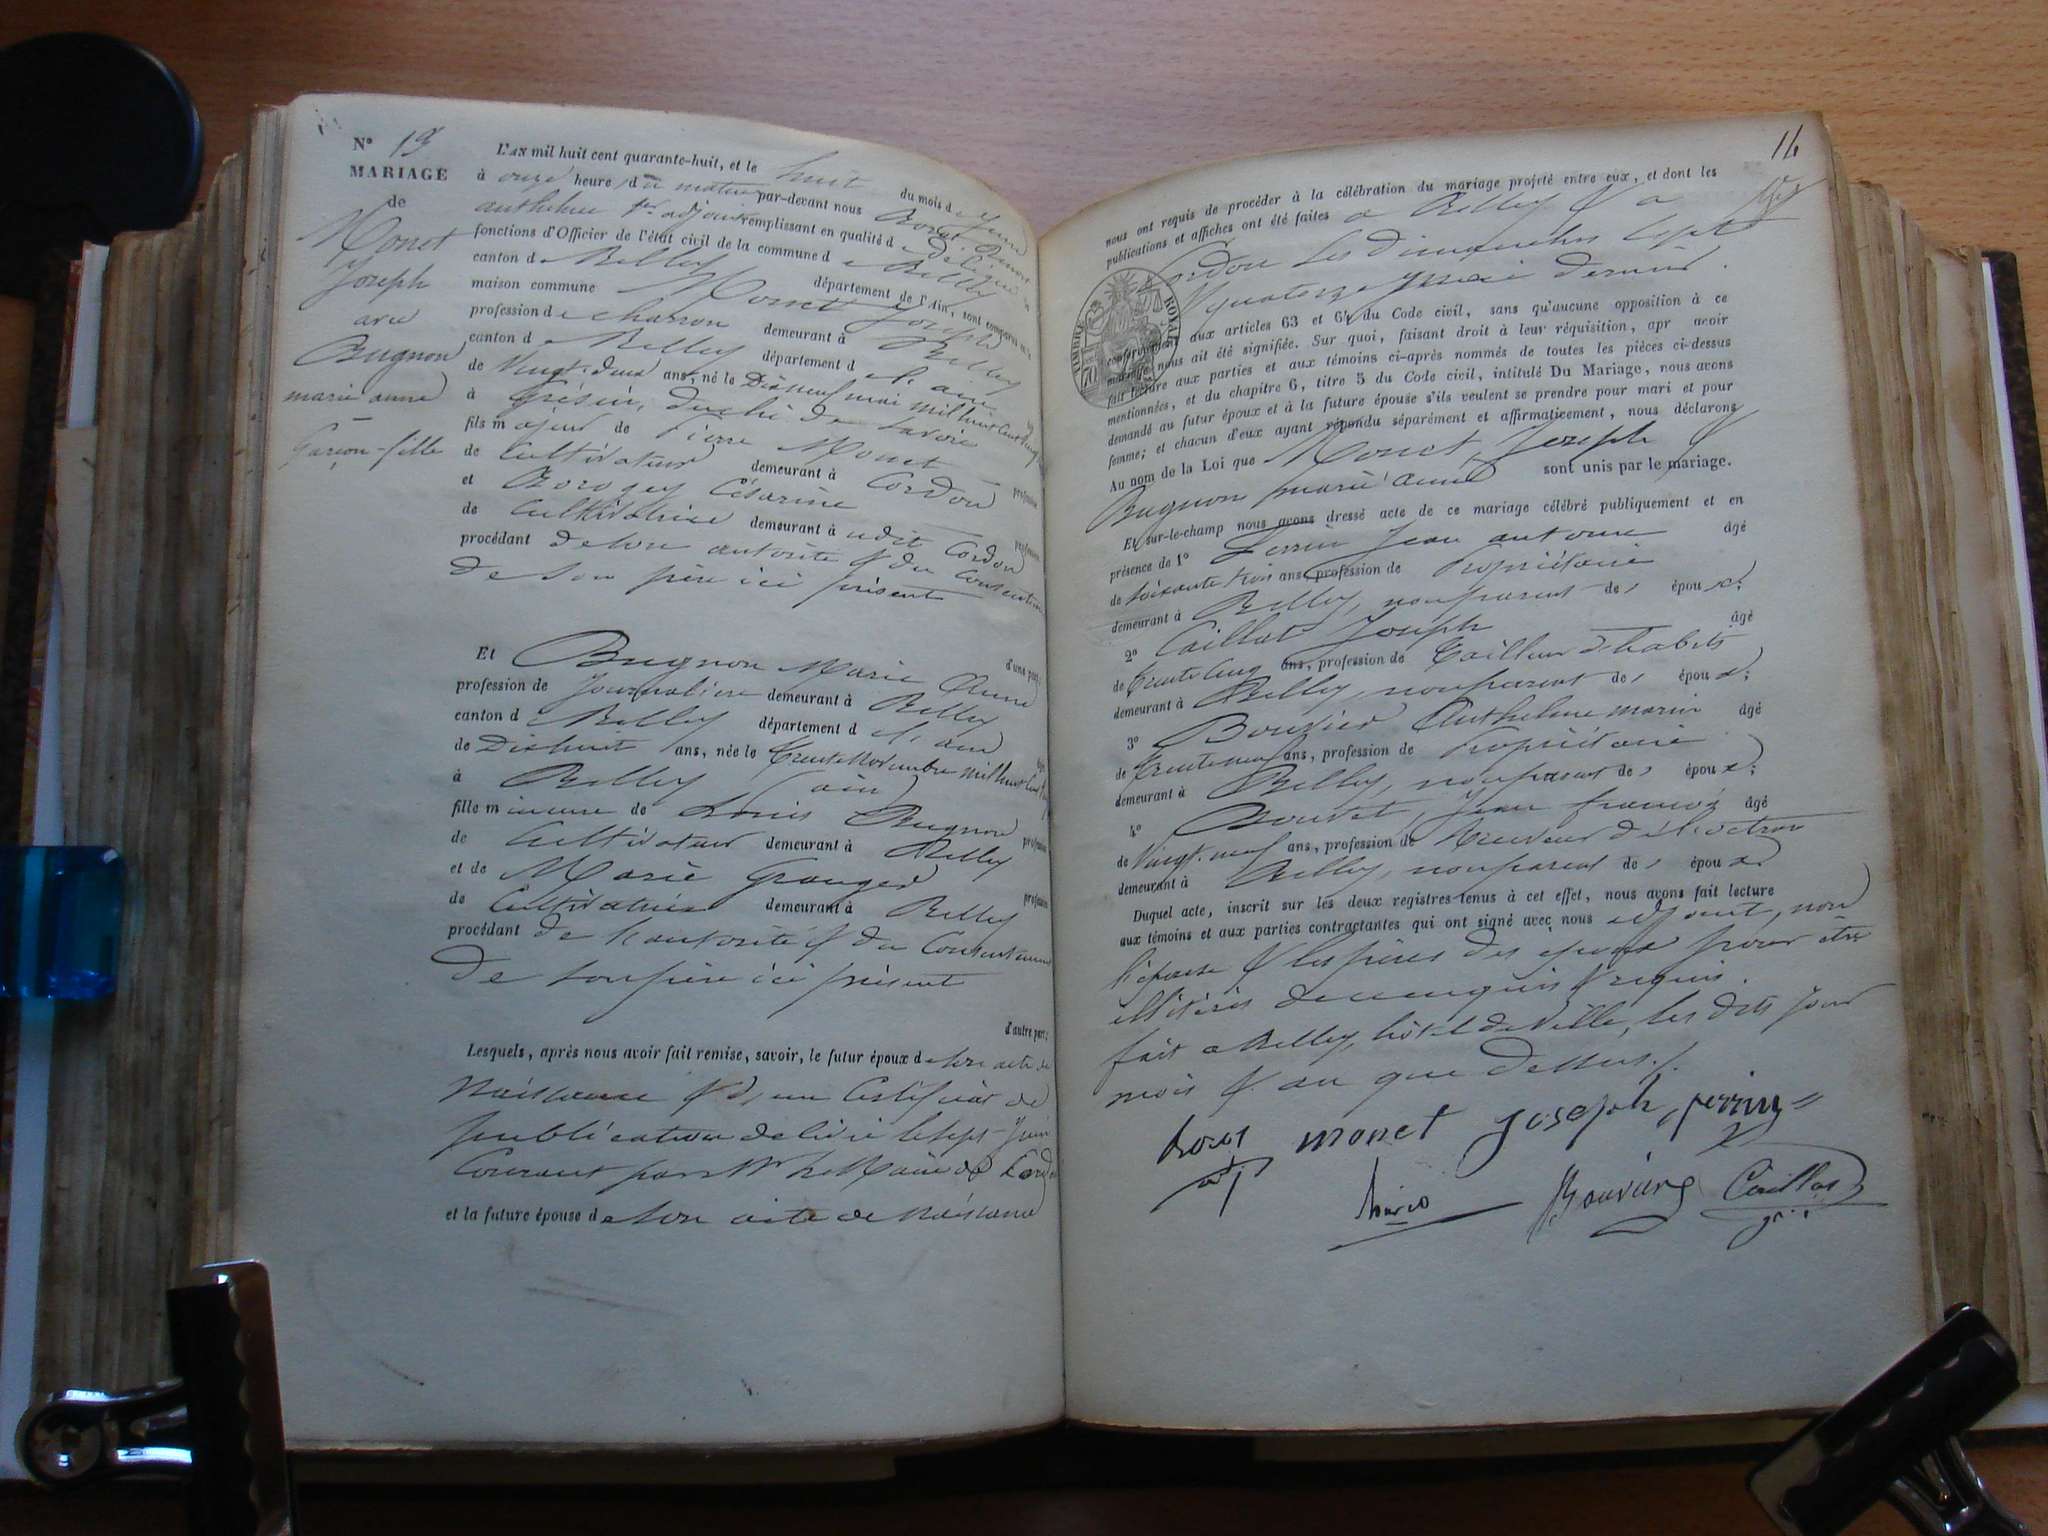 N° 13
MARIAGE
de
Monet
Joseph
avec
Bugnon
marie anne
Garçon-fille
L'AN mil huit cent quarante-huit, et le huit du mois de Juin
à onze heure du matin par-devant nous
anthelme 1er adjoint remplissant en qualité de Délégué
fonctions d'Officier de l'état civil de la commune de Belley
canton de Belley département de l'Ain, sont comparus
maison commune Monet Joseph
profession de charron demeurant à Belley
canton de Belley département de l'ain
de Vingt-deux ans, né le Dixneuf mai mil huit cent
à Grésin, duché de Savoie
fils majeur de Pierre Monet
de Cultivateur demeurant à Cordon profession
et Borogey Césarine
de Cultivatrice demeurant à udit Cordon profession
procédant de son autorité & du Consentement
de son père ici présent
d'une part;
Et Bugnon Marie Anne
profession de Journalière demeurant à Belley
canton de Belley département de l'ain
de Dixhuit ans, née le trente Novembre mil huit cent
à Belley (ain)
fille mineure de Louis Bugnon
de Cultivateur demeurant à Belley profession
et de Marie Granger
de Cultivatrice demeurant à Belley profession
procédant de l'autorité & du Consentement
de son père ici présent
d'autre part;
Lesquels, après nous avoir fait remise, savoir, le futur époux de son acte de
Naissance & d'un Certificat de
publication délivré le sept Juin
Courant par Mr le Maire de Cordon
et la future épouse de son acte de Naissance
14
nous ont requis de procéder à la célébration du mariage projeté entre eux, et dont les
publications et affiches ont été faites a Belley & a
Cordon les dimanches sept
& quatorze mai dernier.
TIMBRE ROYAL
70
conformément aux articles 63 et 64 du Code civil, sans qu'aucune opposition à ce
mariage nous ait été signifiée. Sur quoi, faisant droit à leur réquisition, apr avoir
fait lecture aux parties et aux témoins ci-après nommés de toutes les pièces ci-dessus
mentionnées, et du chapitre 6, titre 5 du Code civil, intitulé Du Mariage, nous avons
demandé au futur époux et à la future épouse s'ils veulent se prendre pour mari et pour
femme; et chacun d'eux ayant répondu séparément et affirmativement, nous déclarons
Au nom de la Loi que Monet, Joseph &
Bugnon marie anne sont unis par le mariage.
Et sur-le-champ nous avons dressé acte de ce mariage célébré publiquement et en
présence de 1° Perrin Jean antoine âgé
de soixante trois ans, profession de Propriétaire
demeurant à Belley, non parent des époux;
2° Caillat Joseph âgé
de trente cinq ans, profession de Tailleur d'habits
demeurant à Belley, non parent des époux;
3° Bouvier Anthelme marin âgé
de trente neuf ans, profession de Propriétaire
demeurant à Belley, non parent des époux;
4° Jean françois âgé
de Vingt-neuf ans, profession de
demeurant à Belley, non parent des époux
Duquel acte, inscrit sur les deux registres tenus à cet effet, nous avons fait lecture
aux témoins et aux parties contractantes qui ont signé avec nous adjoint, non
l'épouse & les pères des époux pour être
illitérés de ce enquis & requis.
fait a Belley, hôtel de Ville, les dits Jour
mois & an que dessus./.
monet joseph perrin
Bouvier Caillat